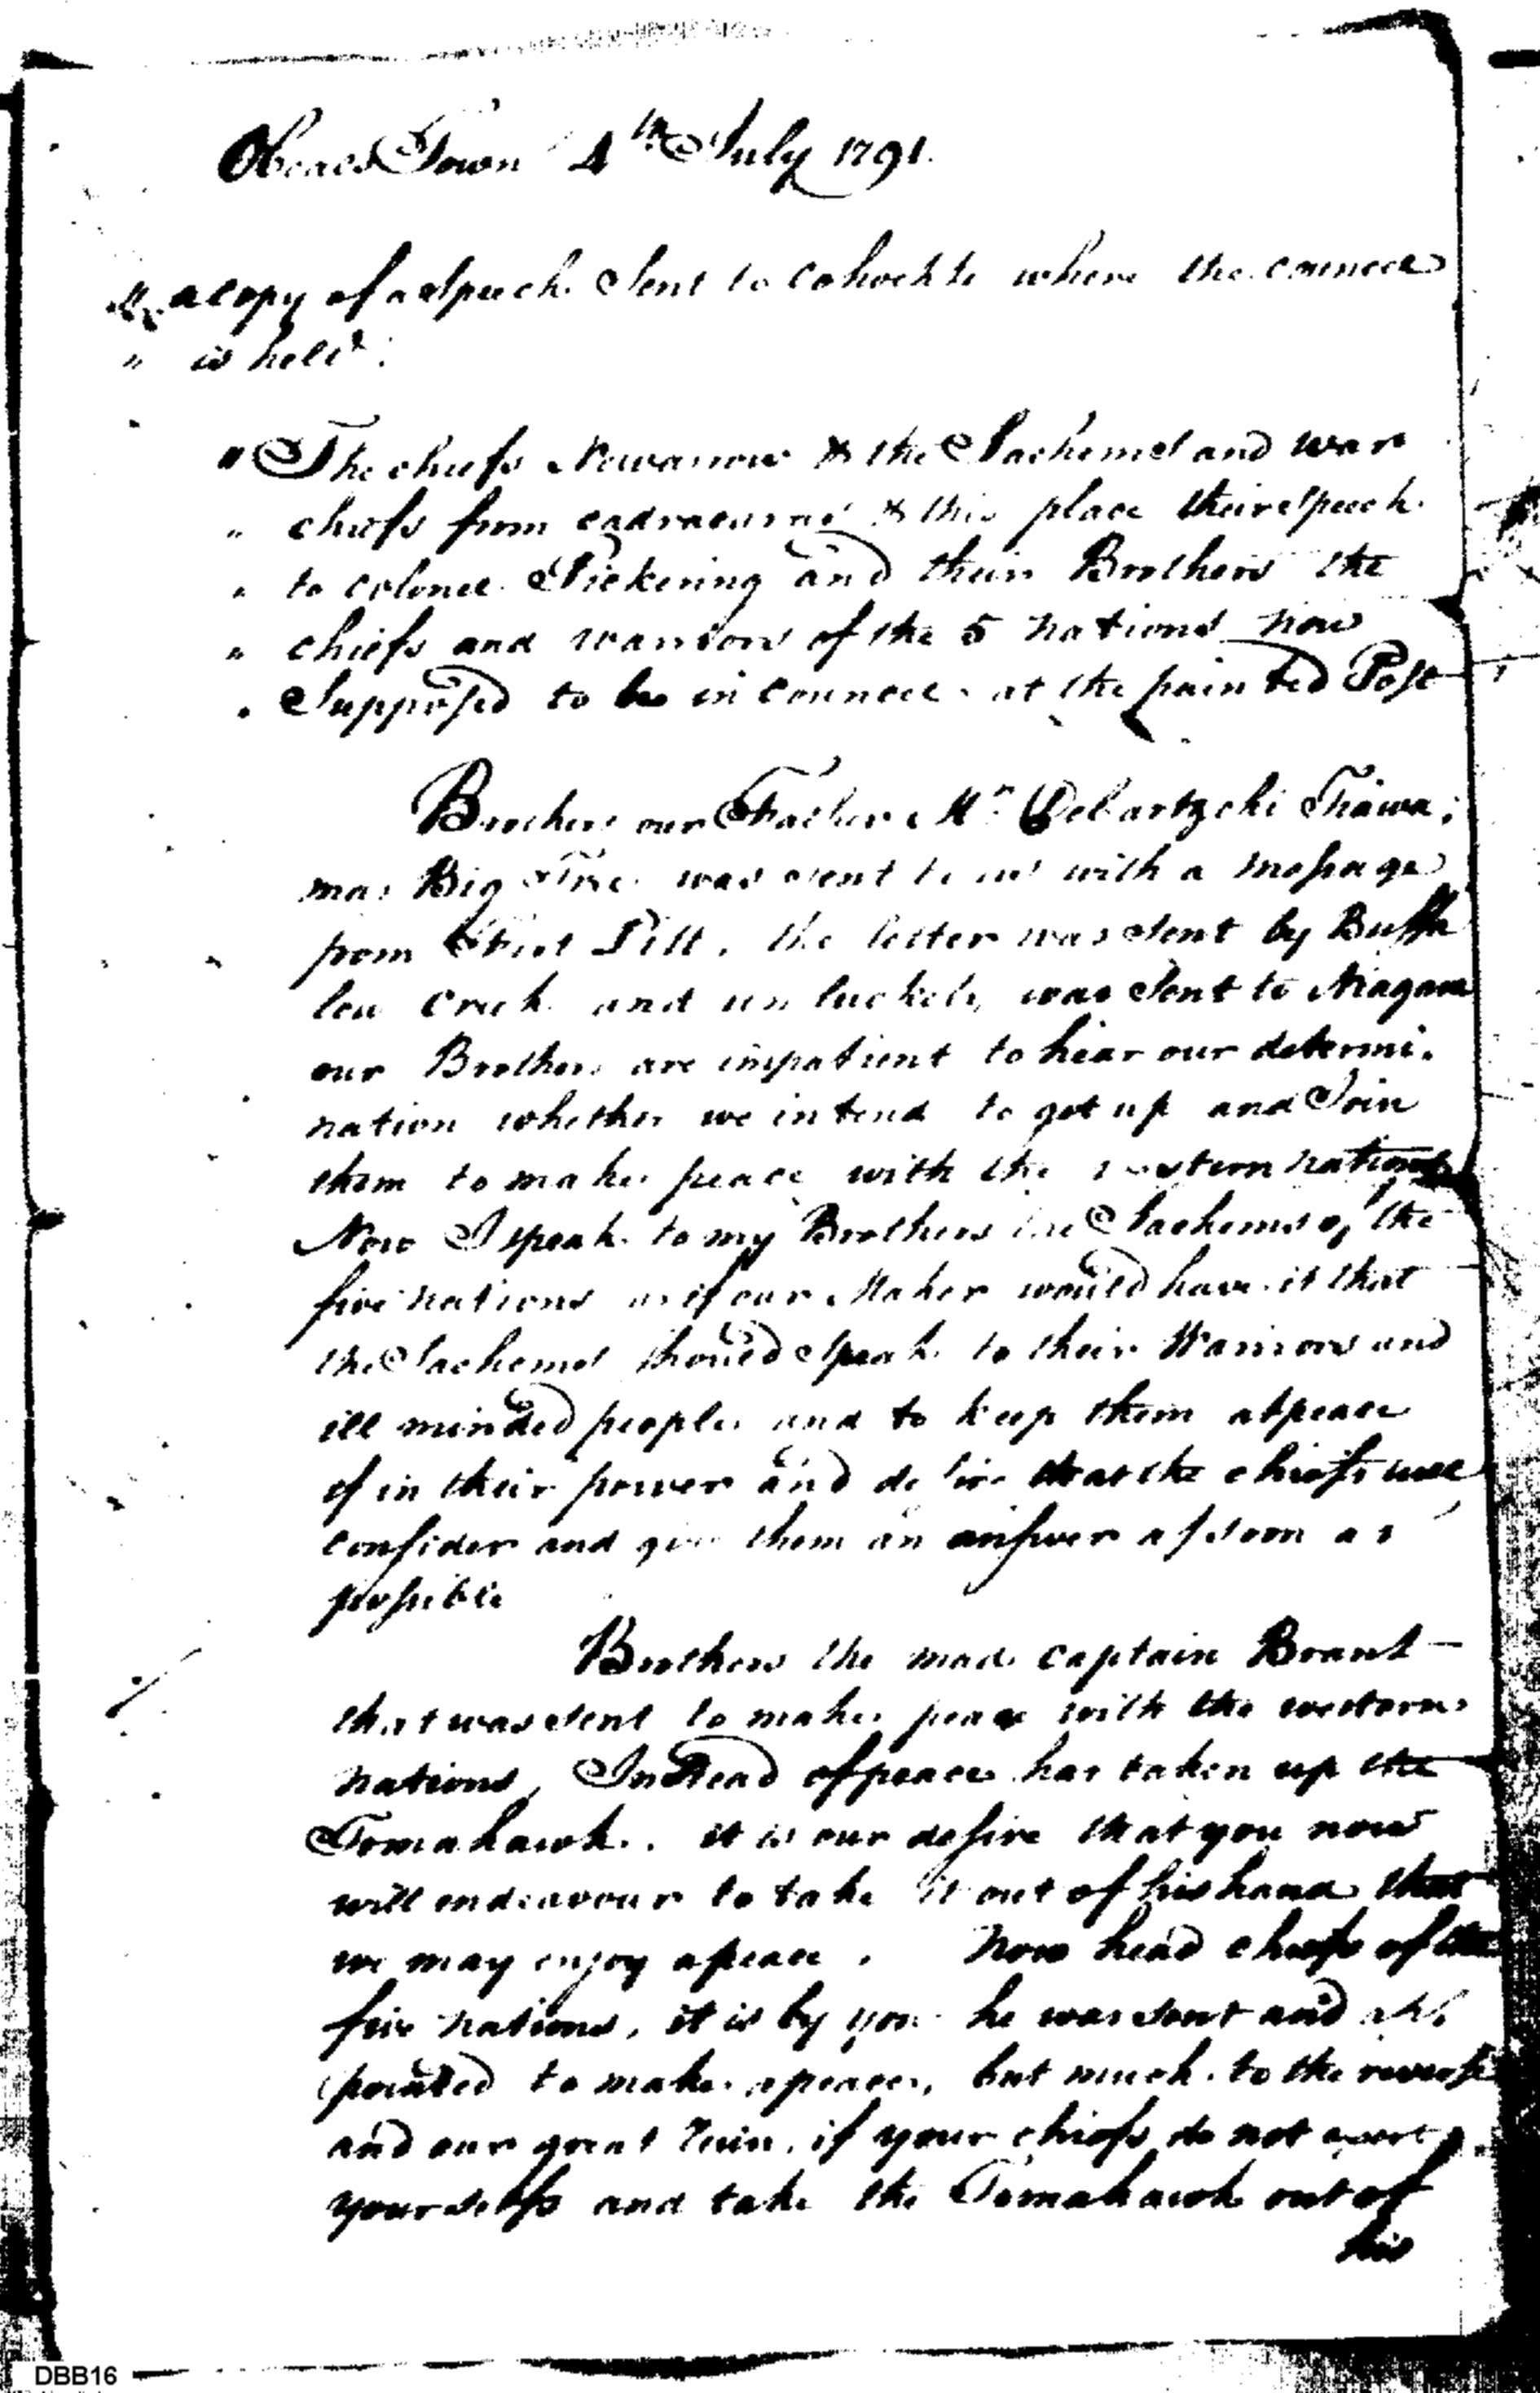 Obeals Town 4th July 1791.
" a copy of a Speech Sent to Cohockte where the councel
" is held.
" The chiefs Newarrow & the Sachems and war
" chiefs from & this place their Speech
" to colonel Pickering and their Brothers the
" chiefs and warriors of the 5 nations now
" Supposed to be in Councel at the painted Post
Brothers our Father Mr
mas Big Tree was sent to us with a message
from Fort Pitt, the letter was sent by Buffa
low Creek and un luckely was Sent to Niagara
our Brothers are impatient to hear our determi-
nation whether we intend to get up and Join
them to make peace with the western nations
Now I speak to my Brothers the Sachems of the
five nations as if our Maker would have it that
the Sachems should Speak to their Warriors and
ill minded people and to keep them at peace
if in their power and desire that the chiefs will
consider and give them an answer as soon as
possible
Brothers the mad Captain Brant
that was sent to make peace with the western
nations, Instead of peace has taken up the
Tomahawk. it is our desire that you now
will endeavour to take it out of his hand that
we may enjoy a peace. Now head chiefs of the
five nations, it is by you he was sent and ap
pointed to make a peace, but much to the reverse
and our great Ruin, if your chiefs do not exert
yourselfs and take the Tomahawk out of
his
DBB16